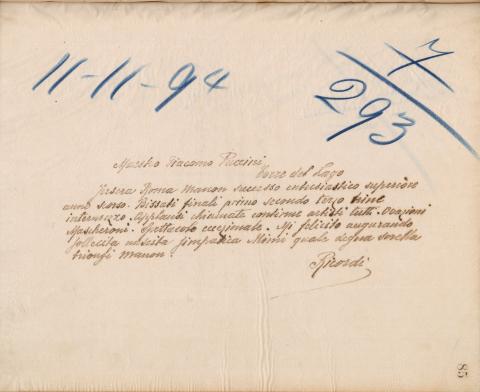 11-11-94
7
293
Maestro Giacomo Puccini
Torre del Lago
Jersera Roma Manon successo entusiastico superiore
anno scorso. Bissati finali primo secondo terzo
intermezzo. Applausi chiamate continue artisti tutti. Ovazioni
Mascheroni. Spettacolo eccezionale. Mi felicito augurando
sollecita nascita simpatica Mimi quale degna sorella
trionfi Manon.
Ricordi
85